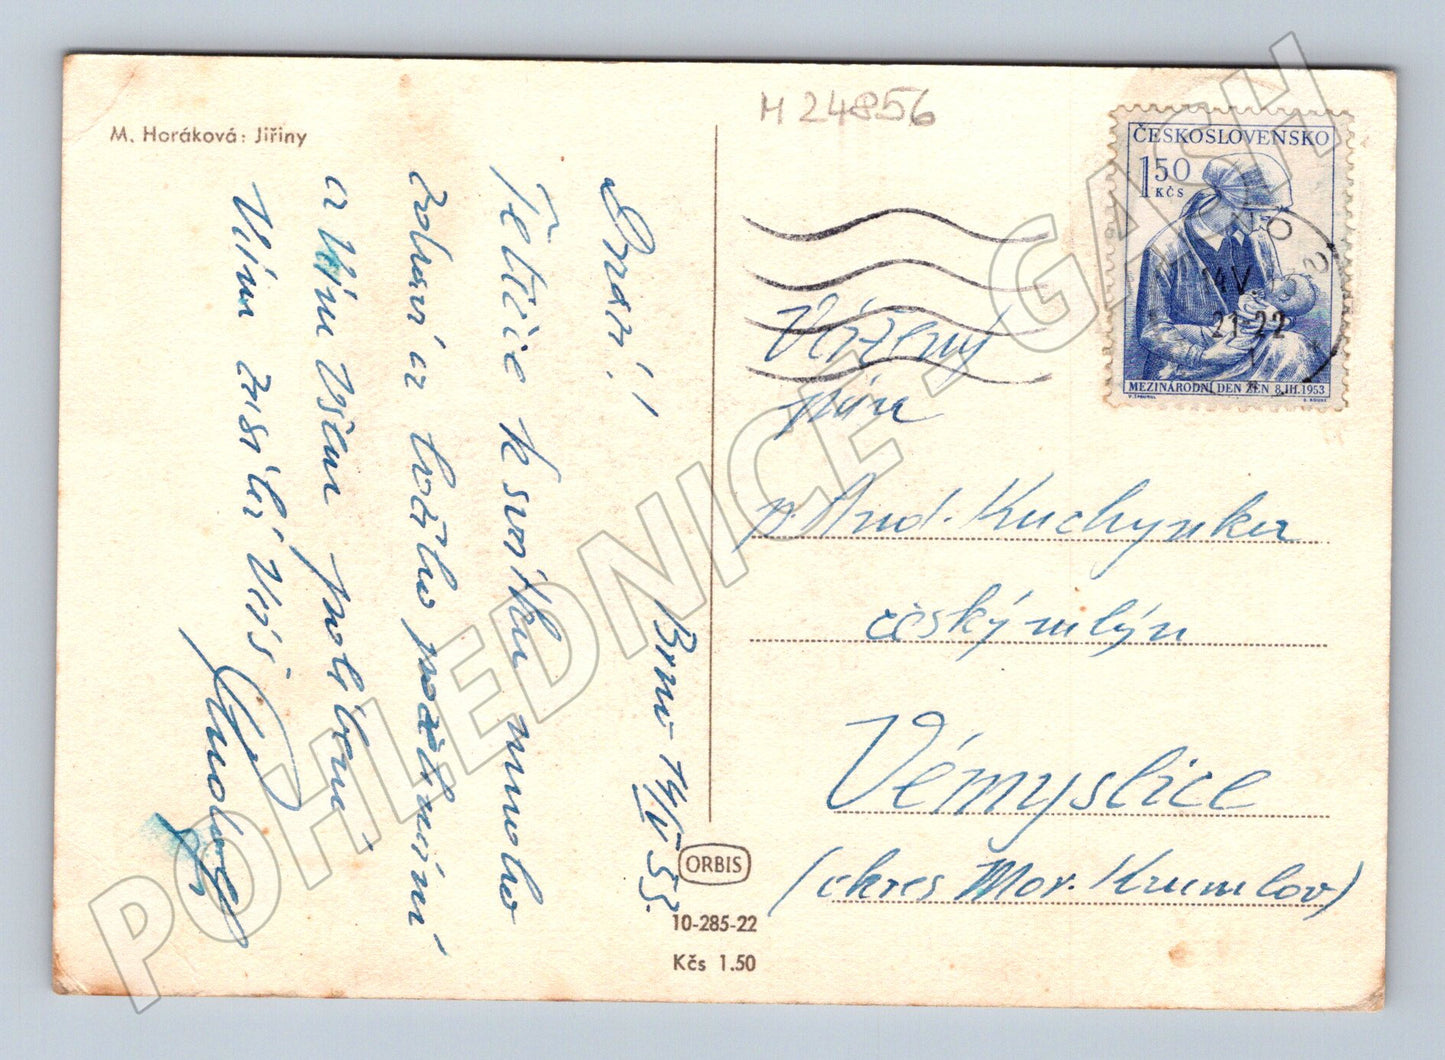 M. Horáková: Jiřiny
H 24856
Brno 14/V 53.
Drazí!
Ke štěstí k svátku mnoho
zdraví a božího požehnání
a Vám Všem políbení
Vám zasílá Váš
ČESKOSLOVENSKO
1,50
KČS
MEZINÁRODNÍ DEN ŽEN 8.III.1953
14 V
21-22
Vážený
pán
p. And. Kuchynka
český mlýn
Vémyslice
(okres Mor. Krumlov)
ORBIS
10-285-22
Kčs 1.50
POHLEDNICE - GASH